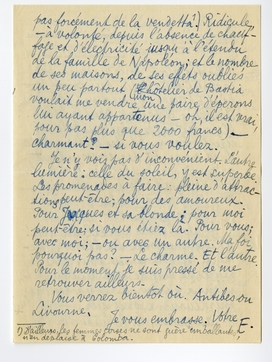 pas forcement de la vendetta!) Ridicule,
– à volonté, depuis l'absence de chauf-
fage et d'électricité jusqu'à l'étendue
de la famille de Napoleon; et le nombre
de ses maisons, de ses effets oubliés
un peu partout (l'hotelier de Bastia
voulait me vendre une paire d'éperons
lui ayant appartenus – oh, c'est vrai,
pour pas plus que 2000 francs) –
charmant? – si vous voulez.
Je n'y vois pas d'inconvenient. L'autre
lumière: celle du soleil, y est superbe.
Les promenades à faire: pleine d'attrac-
tions peut-être; pour des amoureux.
Pour et sa blonde; pour moi
peut-être; si vous étiez là. Pour vous;
avec moi; – ou avec un autre. Ma foi
pourquoi pas! – Le charme. Et l'autre.
Pour le moment, je suis pressé de me
retrouver ailleurs.
Vous verrez bientôt où. Antibes ou
Livourne.
Je vous embrasse. Votre
E.
1) D'ailleurs, les femmes Corses ne sont guère emballantes,
n'en deplaise à Colomba.